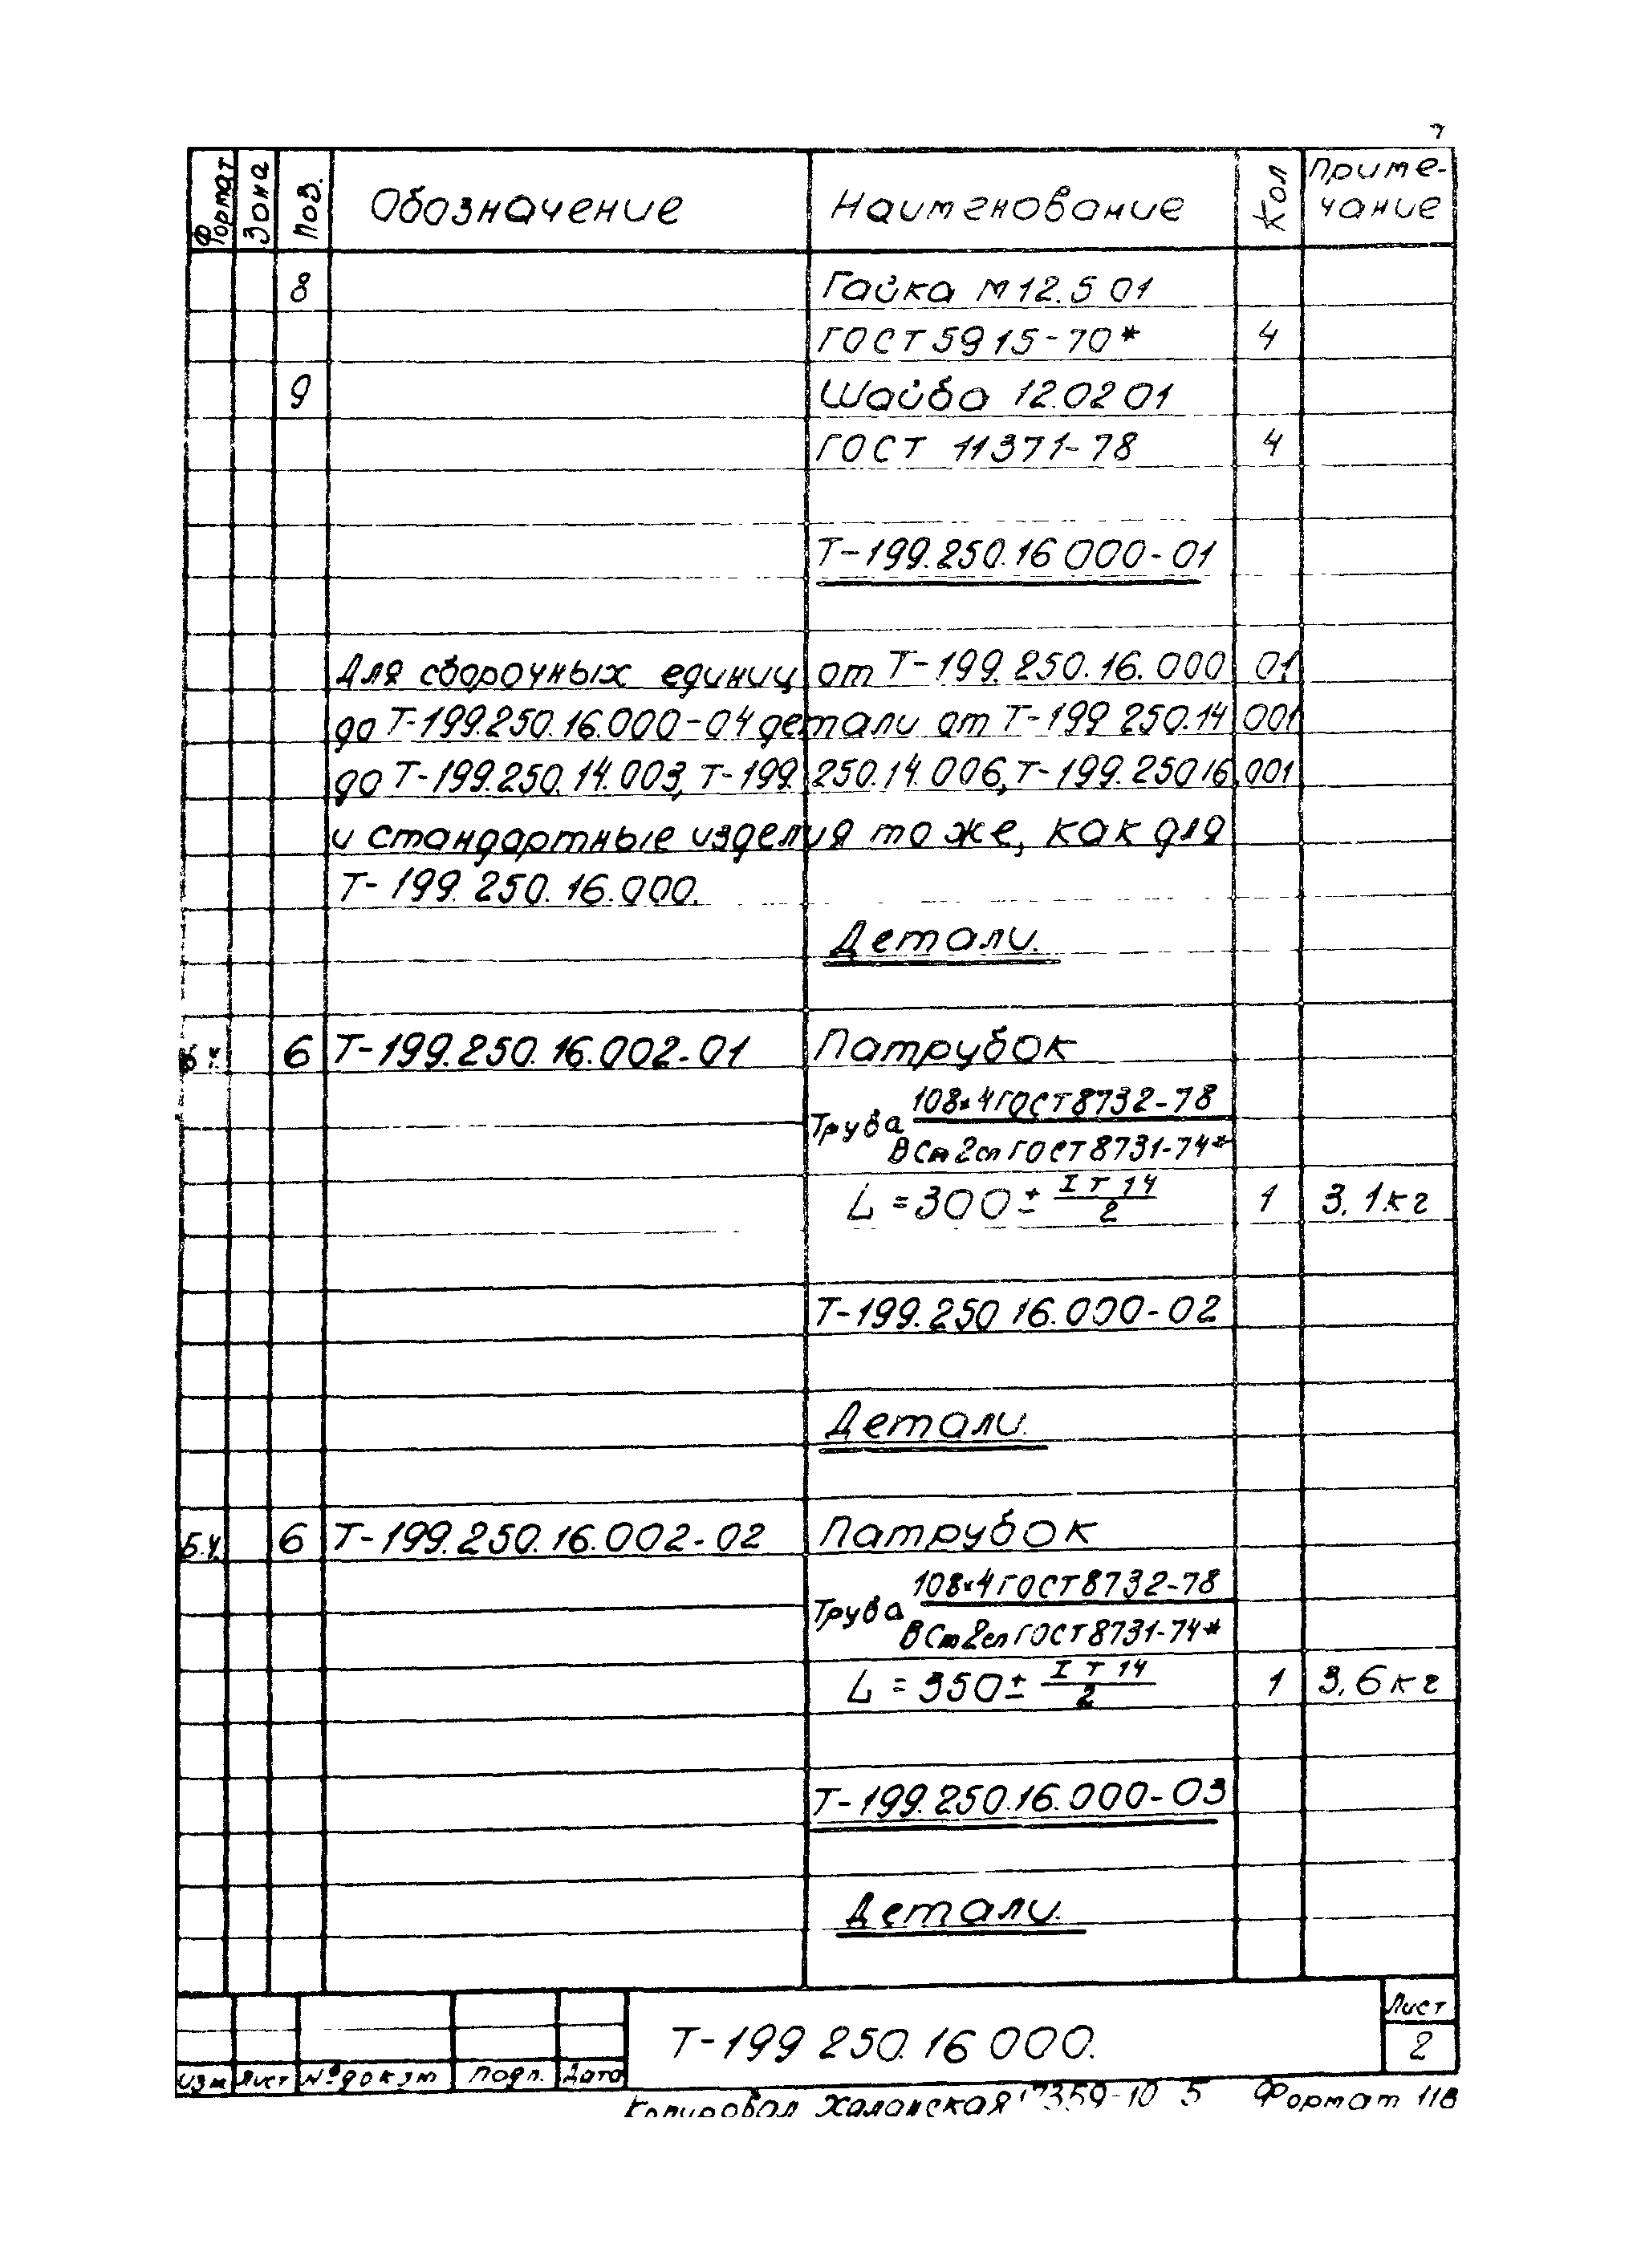 7
Формат Зона Поз. Обозначение Наименование Кол Приме-
чание
8 Гайка М12.5 01
ГОСТ 5915-70* 4
9 Шайба 12.02 01
ГОСТ 11371-78 4
Т-199.250.16 000-01
Для сборочных единиц от Т-199.250.16.000 01
до Т-199.250.16.000-04 детали от Т-199 250.14 001
до Т-199.250.14.003, Т-199.250.14.006, Т-199.250 16.001
и стандартные изделия то же, как для
Т-199.250.16.000.
Детали.
Б.Ч. 6 Т-199.250.16.002-01 Патрубок
108×4 ГОСТ 8732-78
Труба
ВСт2сп ГОСТ 8731-74*
L = 300 ± IT14/2 1 3,1 кг
Т-199.250 16.000-02
Детали.
Б.Ч. 6 Т-199.250.16.002-02 Патрубок
108×4 ГОСТ 8732-78
Труба
ВСт2сп ГОСТ 8731-74*
L = 350 ± IT14/2 1 3,6 кг
Т-199.250.16.000-03
Детали.
Лист
Т-199 250.16 000. 2
Изм Лист № докум Подп. Дата
Копировал Халанская Формат 11В